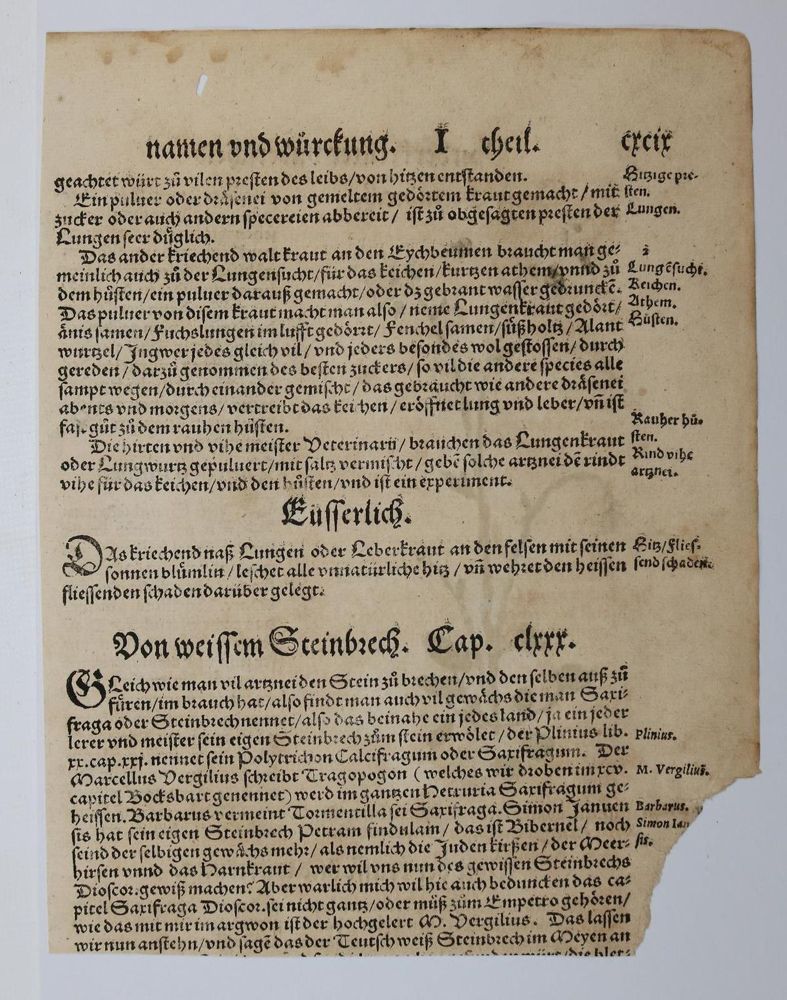 namen vnd würckung. I theil. cxcix
geachtet würt zů vilen presten des leibs/von hitzen entstanden.
Hitzige pre-
sten.
Ein puluer oder dräsenei von gemeltem gedörtem kraut gemacht/mit
zucker oder auch andern specereien abbereit/ ist zů obgesagten presten der
Lungen.
Lungen seer düglich.
Das ander kriechend walt kraut an den Eychbeumen braucht man ge-
2
meinlich auch zů der Lungensucht/für das keichen/kurtzen athem/vnnd zů
Lungēsucht.
dem hůsten/ein puluer darauß gemacht/oder dz gebrant wasser gedrunckē.
Keichen.
Das puluer von disem kraut macht man also/neme Lungenkraut gedört/
Athem.
änis samen/Fuchslungen im lufft gedörrt/Fenchel samen/süßholtz/Alant
Hůsten.
wurtzel/Ingwer jedes gleich vil/vnd jeders besondes wol gestossen/durch
gereden/darzů genomen des besten zuckers/so vil die andere species alle
sampt wegen/durch einander gemischt/das gebraucht wie andere dräsenei
abents vnd morgens/vertreibt das keichen/eröffnet lung vnd leber/vñ ist
fast gůt zů dem rauhen hůsten.
Rauher hů-
sten.
Die hirten vnd vihe meister Veterinarij/brauchen das Lungenkraut
oder Lungwurtz gepuluert/mit saltz vermischt/gebē solche artznei dē rindt
Rind vihe
artznei.
vihe für das keichen/vnd den hůsten/vnd ist ein experiment.
Eüsserlich.
DAs kriechend naß Lungen oder Leberkraut an den felsen mit seinen
Hitz/flies-
sonnen blůmlin/leschet alle vnnatürliche hitz/vñ wehret den heissen
send schaden.
fliessenden schaden darüber gelegt.
Von weissem Steinbrech. Cap. clxxx.
GLeich wie man vil artznei den Stein zů brechen/vnd den selben auß zů
füren/im brauch hat/also findt man auch vil gewächs die man Saxi-
fraga oder Steinbrech nennet/also das beinahe ein jedes land/ja ein jeder
lerer vnd meister sein eigen Steinbrech zům stein erwölet/der Plinius lib.
Plinius.
xx.cap.xxj. nennet sein Polytrichon Calcifragum oder Saxifragum. Der
Marcellus Vergilius schreibt Tragopogon (welches wir droben im xcv.
M. Vergiliꝰ.
capitel Bocksbart genennet) werd im gantzen Hetruria Saxifragum ge-
heissen. Barbarus vermeint Tormentilla sei Saxifraga. Simon Januen
Barbarus.
sis hat sein eigen Steinbrech Petram findulam/das ist Bibernel/noch
Simon Ian
seind der selbigen gewächs mehr/als nemlich die Juden kirßen/der Meer-
sis.
hirsen vnnd das Harnkraut/ wer wil vns nun des gewissen Steinbrechs
Dioscor. gewiß machen? Aber warlich mich wil hie auch beduncken das ca-
pitel Saxifraga Dioscor. sei nicht gantz/oder můß zům Empetro gehören/
wie das mit mir im argwon ist der hochgelert M. Vergilius. Das lassen
wir nun anstehn/vnd sagē das der Teutsch weiß Steinbrech im Meyen an